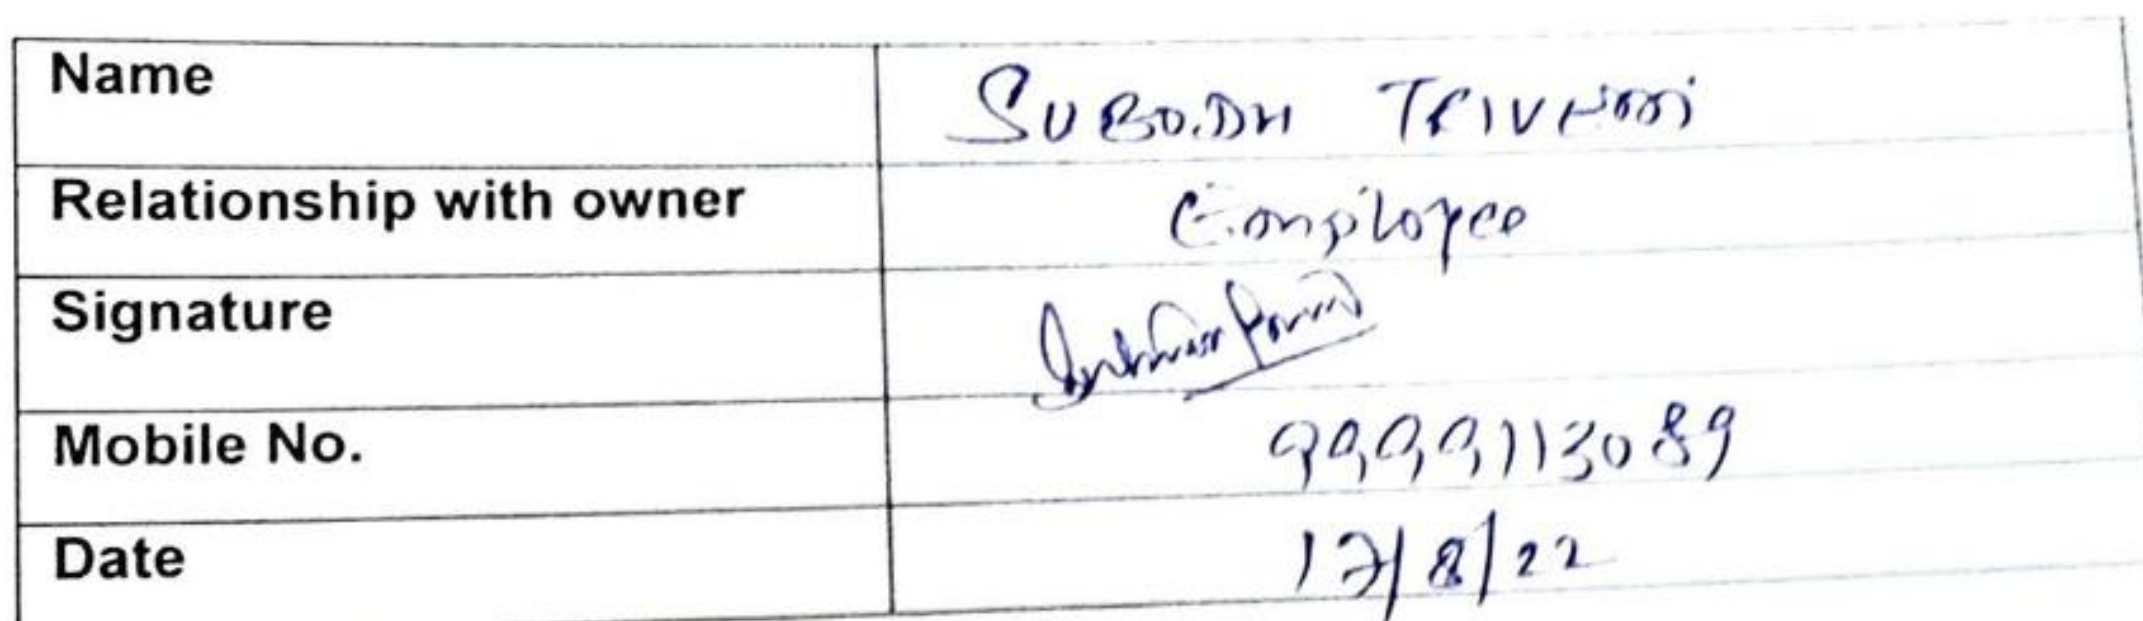 Name SUBODH TRIVEDI
Relationship with owner Employee
Signature
Mobile No. 9999113089
Date 17/8/22